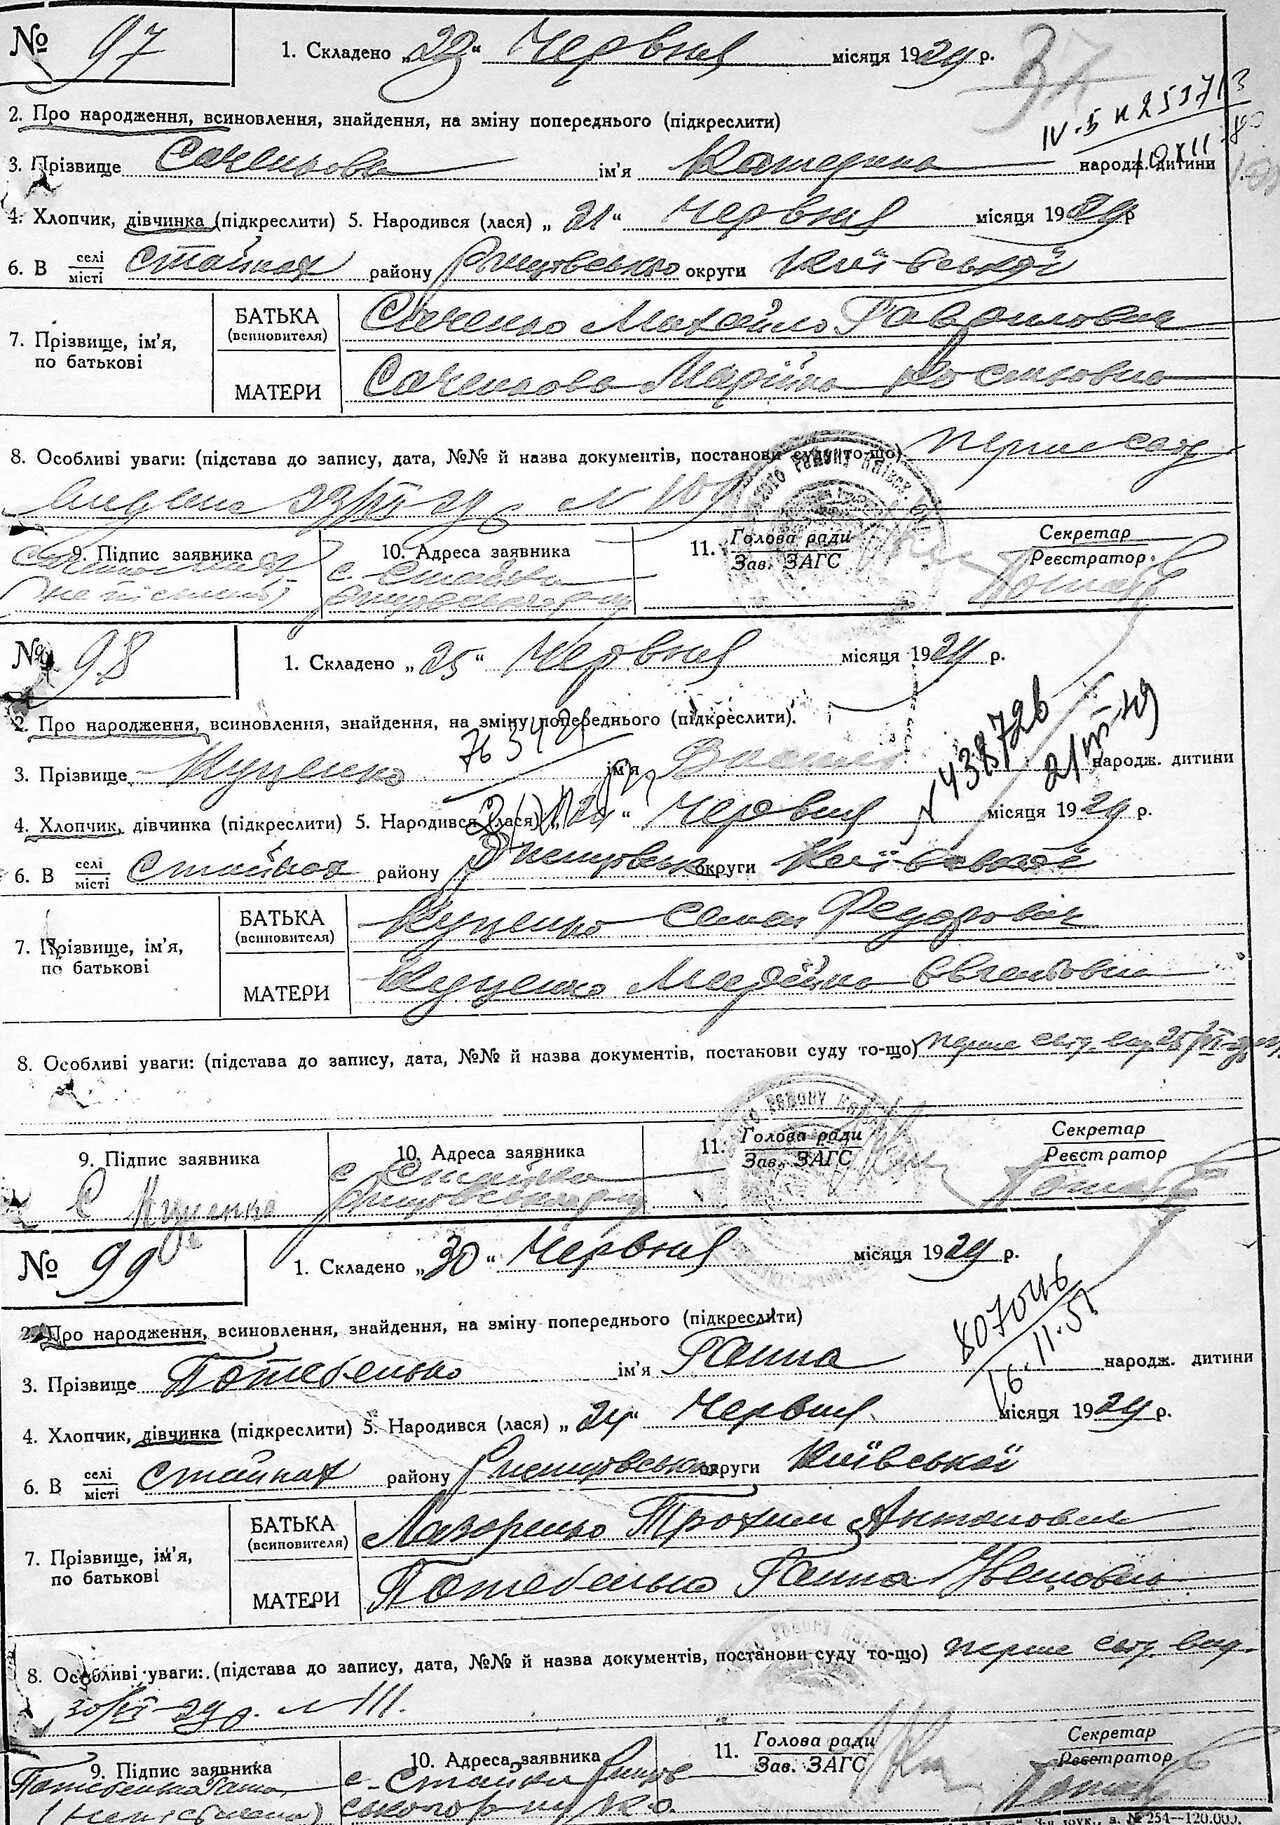 № 97
1. Складено „22“ Червня місяця 1929 р.
37
IV-5 № 253713
2. Про народження, всиновлення, знайдення, на зміну попереднього (підкреслити)
3. Прізвище Саченкова ім'я Катерина народж. дитини
4. Хлопчик, дівчинка (підкреслити) 5. Народився (лася) „21“ Червня місяця 1929 р
6. В селі місті Стайках району Ржищевсько округи Київської
7. Прізвище, ім'я, по батькові
БАТЬКА (всиновителя) Саченко Михайло Гаврилович
МАТЕРИ Саченкова Марійка
8. Особливі уваги: (підстава до запису, дата, №№ й назва документів, постанови суду то-що) перше свід.
N 109
9. Підпис заявника
10. Адреса заявника с. Стайки
11. Голова ради Зав. ЗАГС
Секретар Реєстратор
№ 98
1. Складено „25“ Червня місяця 1929 р.
2. Про народження, всиновлення, знайдення, на зміну попереднього (підкреслити).
763421
N 438726
3. Прізвище Куценко ім'я Василь народж. дитини
4. Хлопчик, дівчинка (підкреслити) 5. Народився (лася) Червня місяця 1929 р.
6. В селі місті Стайках району округи Київської
7. Прізвище, ім'я, по батькові
БАТЬКА (всиновителя) Куценко Семен Федорович
МАТЕРИ Куценко Марійка Євгенівна
8. Особливі уваги: (підстава до запису, дата, №№ й назва документів, постанови суду то-що) перше свід. вид. 25/VI-29
9. Підпис заявника С Куценко
10. Адреса заявника с Стайки
11. Голова ради Зав. ЗАГС
Секретар Реєстратор
№ 99
1. Складено „30“ Червня місяця 1929 р.
807046
16.11.51
2. Про народження, всиновлення, знайдення, на зміну попереднього (підкреслити)
3. Прізвище Потебенько ім'я Ганна народж. дитини
4. Хлопчик, дівчинка (підкреслити) 5. Народився (лася) „24“ Червня місяця 1929 р.
6. В селі місті Стайках району Ржищовсько округи Київської
7. Прізвище, ім'я, по батькові
БАТЬКА (всиновителя) Лазоренко Трохим Антонович
МАТЕРИ Потебенько Ганна
8. Особливі уваги: (підстава до запису, дата, №№ й назва документів, постанови суду то-що) перше свід. вид.
30/VI-29 р. N 111.
9. Підпис заявника Потебенько Ганна
10. Адреса заявника с. Стайки
11. Голова ради Зав. ЗАГС
Секретар Реєстратор
№ 254—120.000.